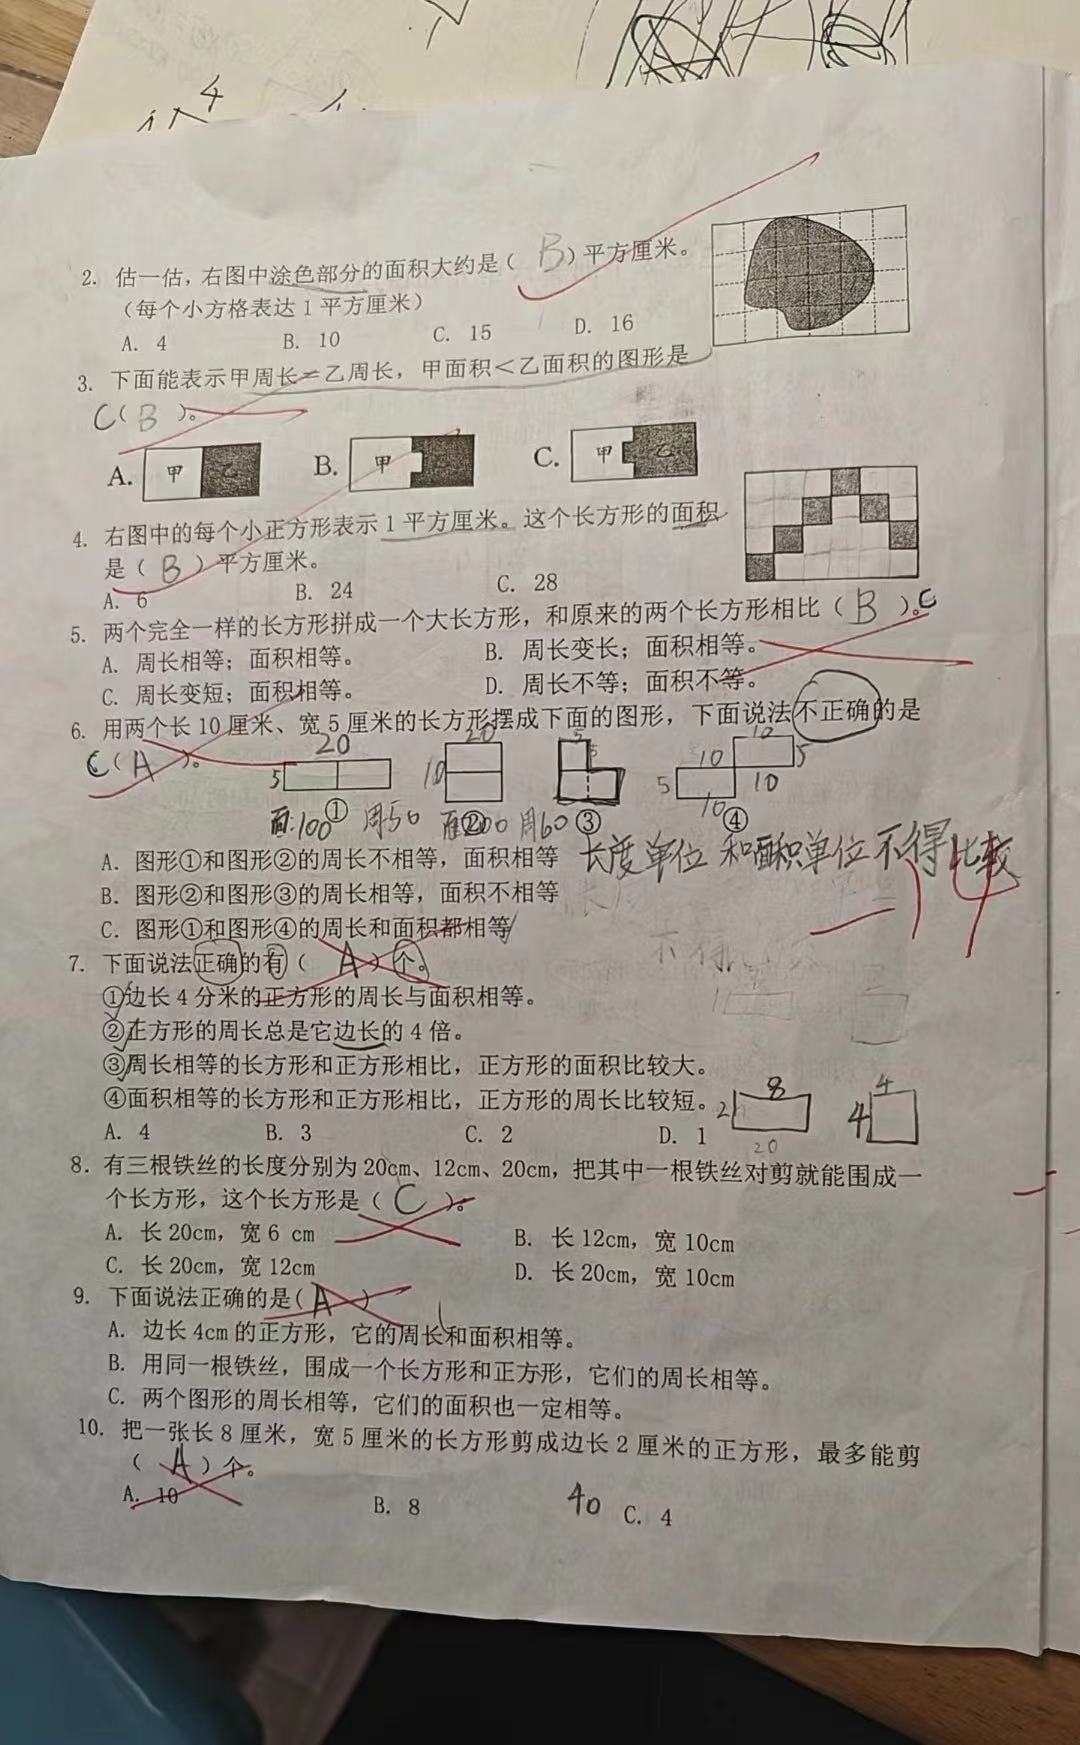 2. 估一估，右图中涂色部分的面积大约是（ B ）平方厘米。
（每个小方格表达1平方厘米）
A. 4 B. 10 C. 15 D. 16
3. 下面能表示甲周长=乙周长，甲面积<乙面积的图形是
C（ B ）。
A. 甲 乙 B. 甲 C. 甲 乙
4. 右图中的每个小正方形表示1平方厘米。这个长方形的面积
是（ B ）平方厘米。
A. 6 B. 24 C. 28
5. 两个完全一样的长方形拼成一个大长方形，和原来的两个长方形相比（ B ）。C
A. 周长相等；面积相等。 B. 周长变长；面积相等。
C. 周长变短；面积相等。 D. 周长不等；面积不等。
6. 用两个长10厘米、宽5厘米的长方形摆成下面的图形，下面说法不正确的是
C（ A ）。
20 5 20 10 5 5 10 10 5 5 10 10
① ② ③ ④
面:100 周50 周60
长度单位和面积单位不得比较
A. 图形①和图形②的周长不相等，面积相等
B. 图形②和图形③的周长相等，面积不相等
-14
C. 图形①和图形④的周长和面积都相等
7. 下面说法正确的有（ A ）个。
①边长4分米的正方形的周长与面积相等。
②正方形的周长总是它边长的4倍。
③周长相等的长方形和正方形相比，正方形的面积比较大。
④面积相等的长方形和正方形相比，正方形的周长比较短。
8 2 4 4
20
A. 4 B. 3 C. 2 D. 1
8. 有三根铁丝的长度分别为20cm、12cm、20cm，把其中一根铁丝对剪就能围成一
个长方形，这个长方形是（ C ）。
A. 长20cm，宽6 cm B. 长12cm，宽10cm
C. 长20cm，宽12cm D. 长20cm，宽10cm
9. 下面说法正确的是（ A ）
A. 边长4cm的正方形，它的周长和面积相等。
B. 用同一根铁丝，围成一个长方形和正方形，它们的周长相等。
C. 两个图形的周长相等，它们的面积也一定相等。
10. 把一张长8厘米，宽5厘米的长方形剪成边长2厘米的正方形，最多能剪
（ A ）个。
A. 10 B. 8 40 C. 4